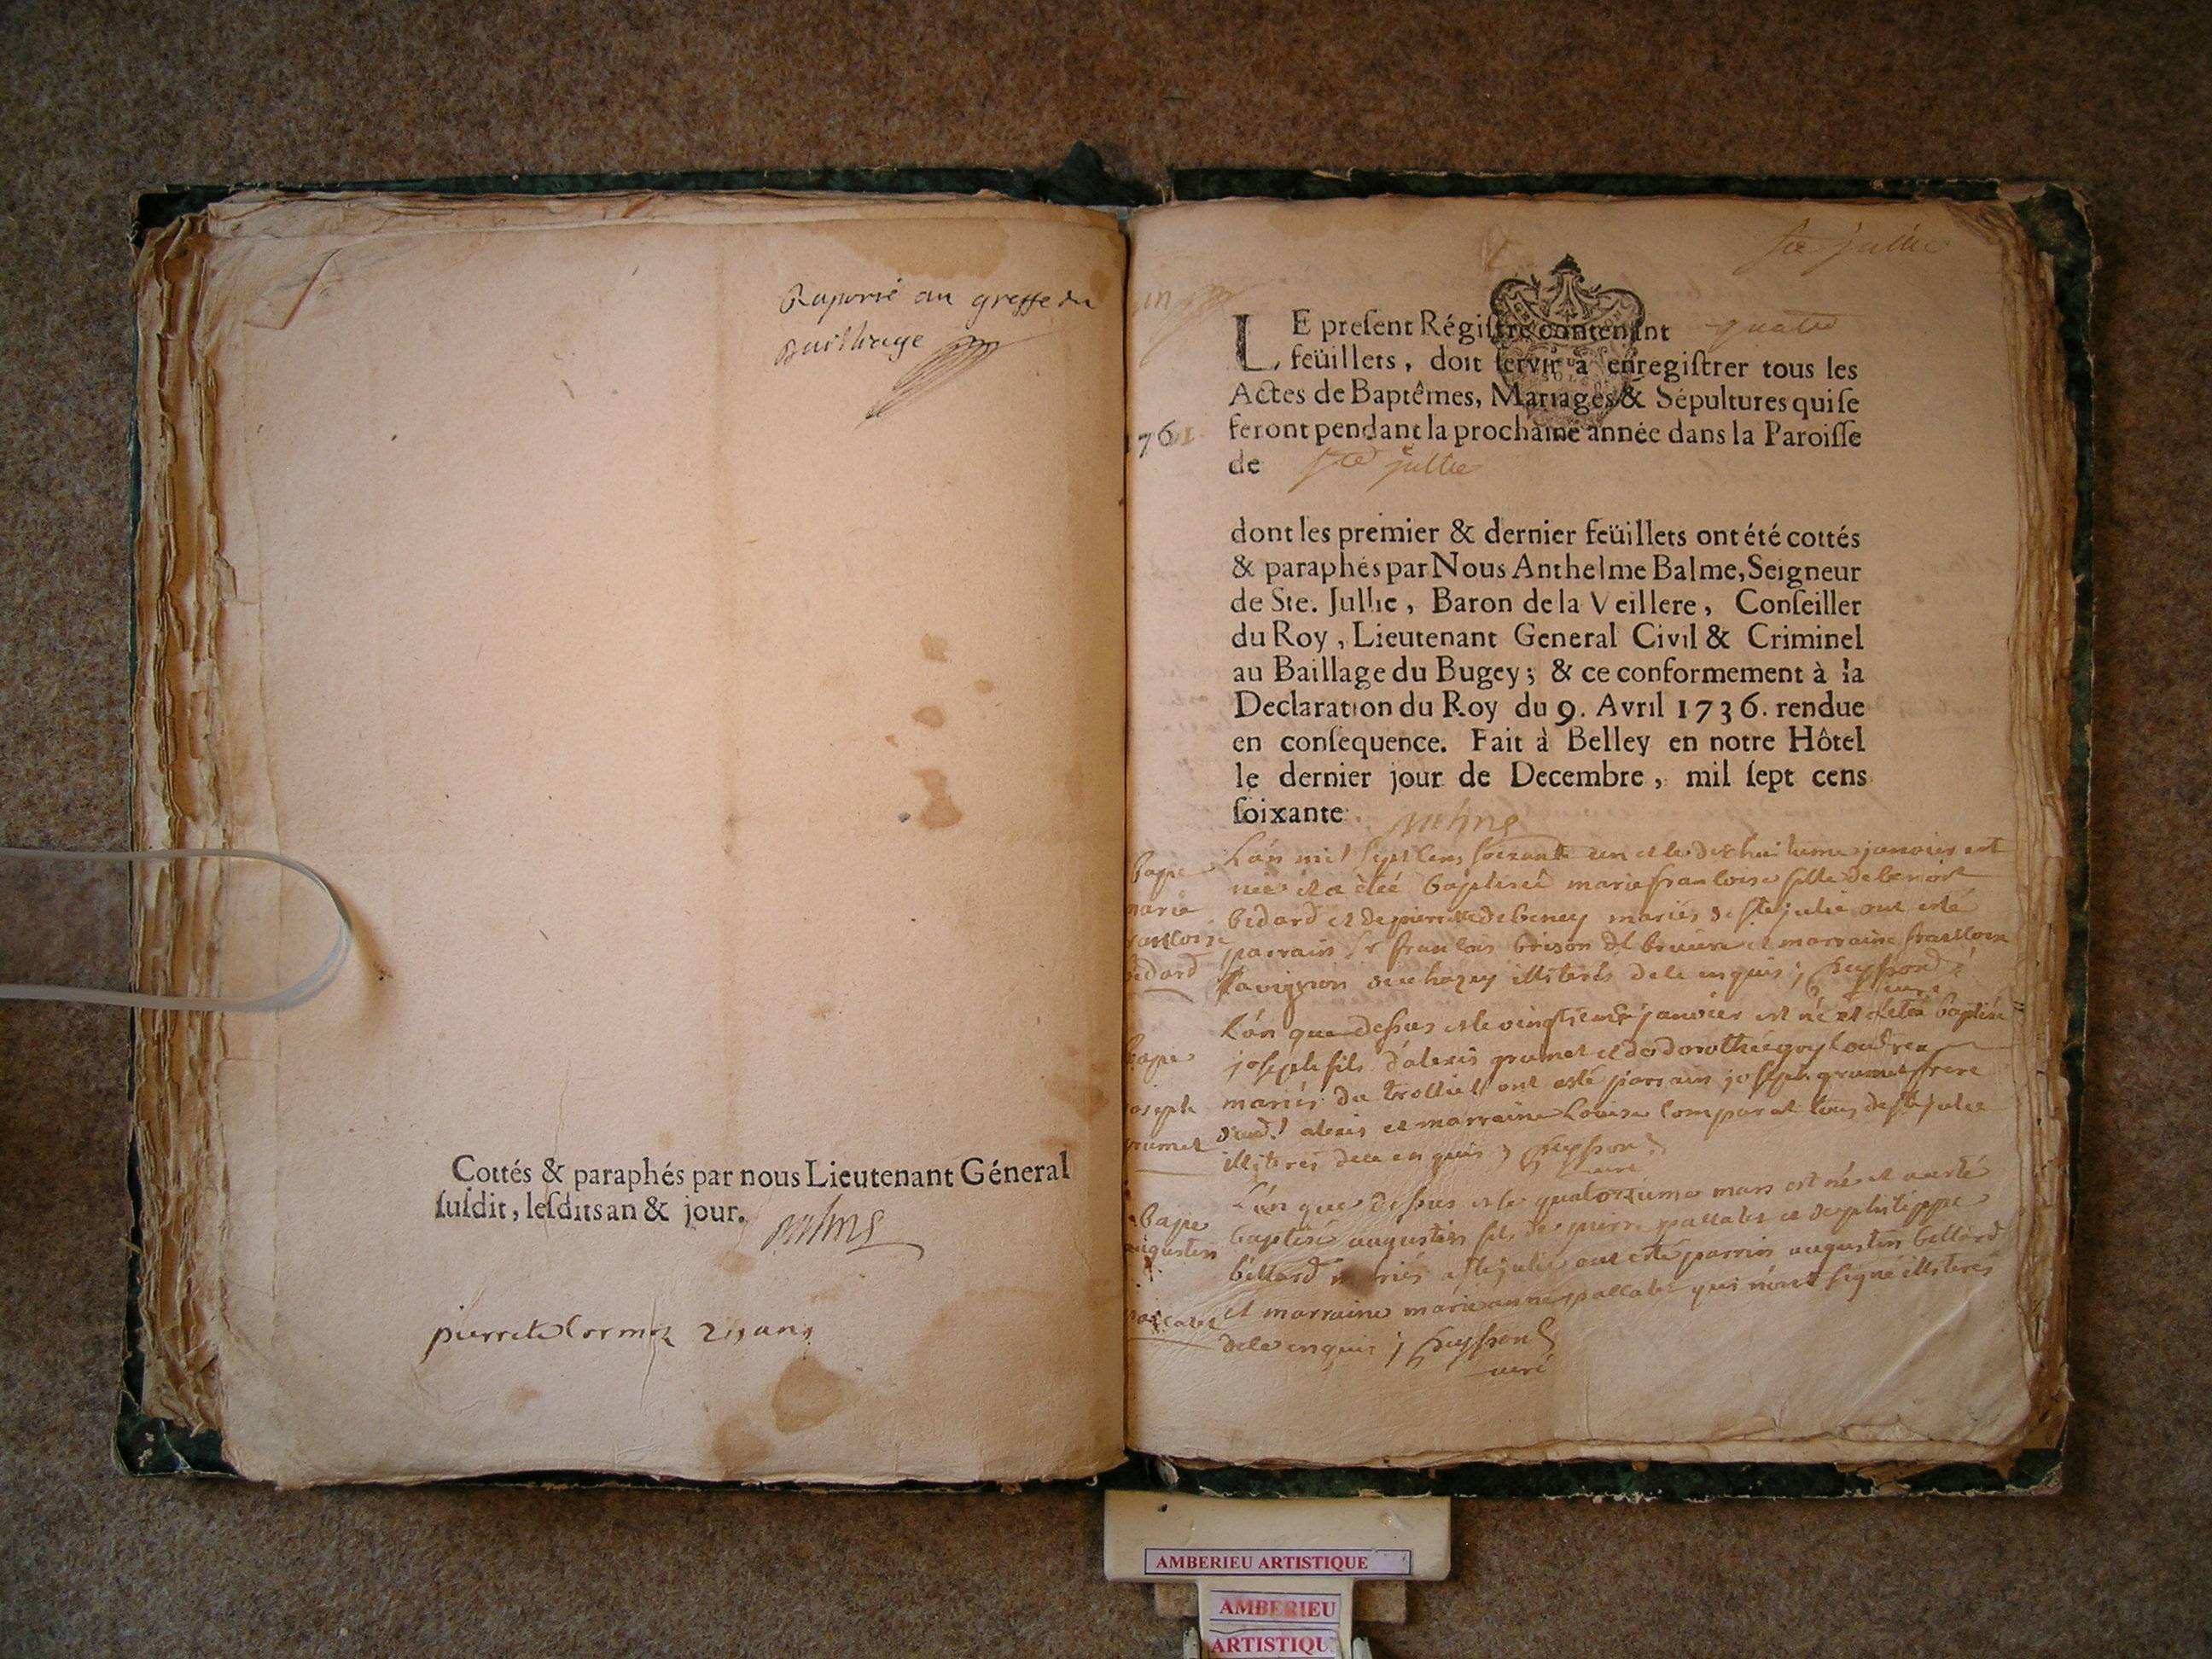 Raporté au greffe du
Bailliage
Cottés & paraphés par nous Lieutenant Géneral
ſuſdit, leſdits an & jour.
pierrete Cormoz 29 ans
Ste jullie
LE preſent Régiſtre contenant quatre
feüillets, doit ſervir à enregiſtrer tous les
Actes de Baptêmes, Mariages & Sépultures qui ſe
feront pendant la prochaine année dans la Paroiſſe
1761
de Ste jullie
dont les premier & dernier feüillets ont été cottés
& paraphés par Nous Anthelme Balme, Seigneur
de Ste. Jullie, Baron de la Veillere, Conſeiller
du Roy, Lieutenant General Civil & Criminel
au Baillage du Bugey; & ce conformement à la
Declaration du Roy du 9. Avril 1736. rendue
en conſequence. Fait à Belley en notre Hôtel
le dernier jour de Decembre, mil ſept cens
ſoixante.
bape
marie
francoise
bedard
L'an mil sept cens soixante un et le dixhuitieme janvier est
née et a etéé baptiseé marie francoise fille de benoit
bedard et de pierrette debeney mariés de ste julie ont esté
parrain Sr francois brison de bruiere et marraine francoise
savignon de chazey illiterés de ce enquis;
curé
bape
joseph
grumet
L'an que dessus et le vingtieme janvier est né et a eté baptisé
joseph fils d'alexis grumet et de dorothée
mariés du trolliet ont esté parrain joseph grumet frere
dud. alexis et marraine Louise Comparat tous de ste julie
illiterés de ce enquis;
curé
bape
augustin
pallatet
L'an que dessus et le quatorzieme mars est né et a esté
baptisé augustin fils de pierre pallatet et de philippe
billard mariés a ste julie ont esté parrin augustin billard
et marraine marie anne pallatet qui n'ont signé illiterés
de ce enquis;
curé
AMBERIEU ARTISTIQUE
AMBERIEU
ARTISTIQU